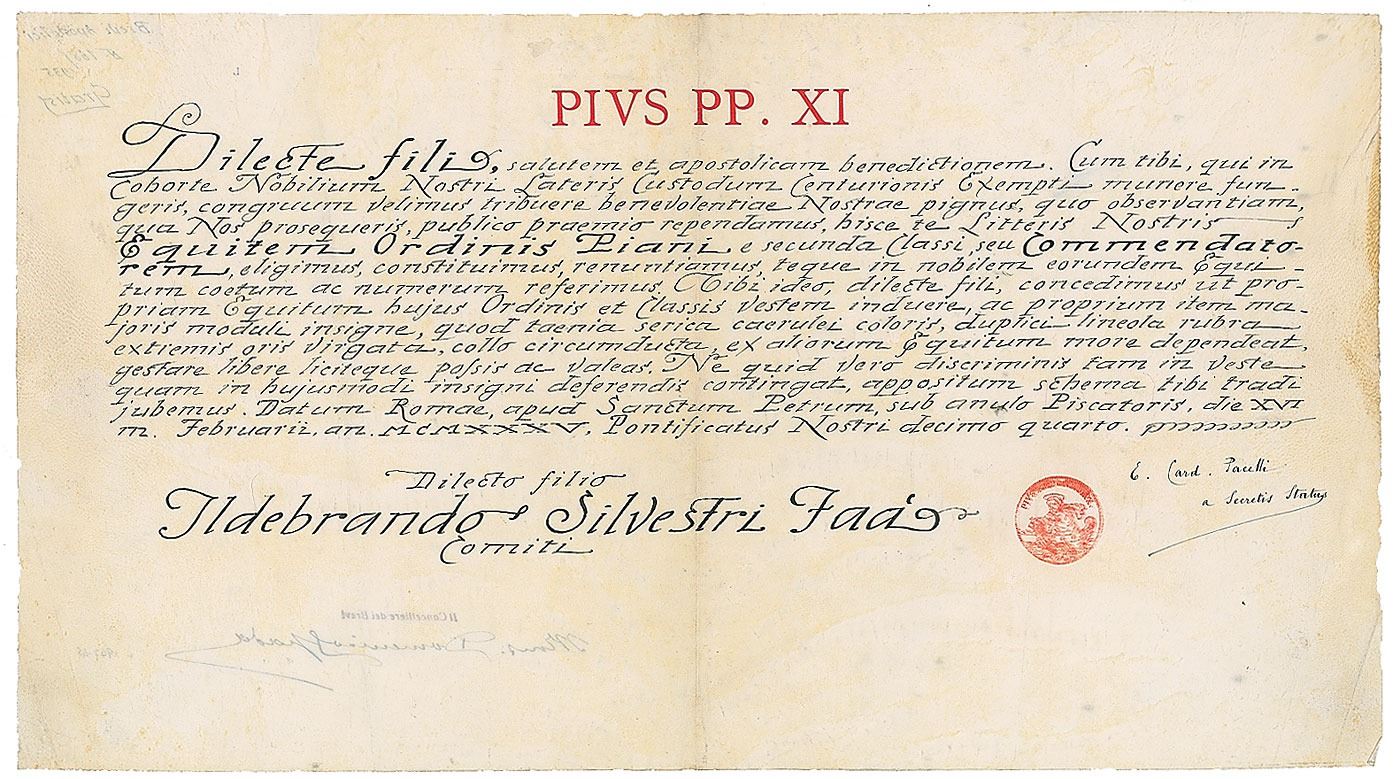 PIVS PP. XI
Dilecte fili, salutem et apostolicam benedictionem. Cum tibi, qui in
Cohorte Nobilium Nostri Lateris Custodum Centurionis Exempti munere fun-
geris, congruum velimus tribuere benevolentiae Nostrae pignus, quo observantiam,
qua Nos prosequeris, publico praemio rependamus, hisce te Litteris Nostris
Equitem Ordinis Piani, e secunda Classi, seu Commendato-
rem, eligimus, constituimus, renuntiamus, teque in nobilem eorundem Equi-
tum coetum ac numerum referimus. Tibi ideo, dilecte fili, concedimus ut pro-
priam Equitum hujus Ordinis et Classis vestem induere, ac proprium item ma-
joris moduli insigne, quod taenia serica caerulei coloris, duplici lineola rubra
extremis oris virgata, collo circumducta, ex aliorum Equitum more dependeat,
gestare libere liciteque possis ac valeas. Ne quid vero discriminis tam in veste
quam in hujusmodi insigni deferendis contingat, appositum schema tibi tradi
jubemus. Datum Romae, apud Sanctum Petrum, sub anulo Piscatoris, die XVI
m. Februarii, an. MCMXXXV, Pontificatus Nostri decimo quarto.
Dilecto filio
Ildebrando Silvestri Faá
Comiti
E. Card. Pacelli
a Secretis Status
Il Cancelliere dei Brevi
Mons. Domenico Spada